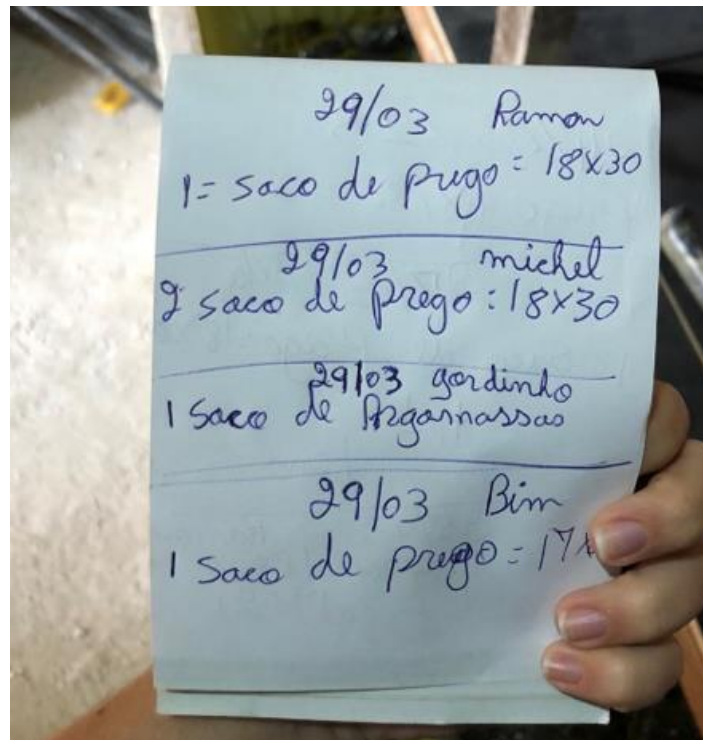 29/03 Ramon
1= saco de prego = 18x30
29/03 michel
2 saco de prego : 18x30
29/03 gordinho
1 Saco de Argamassas
29/03 Bim
1 Saco de prego = 17x